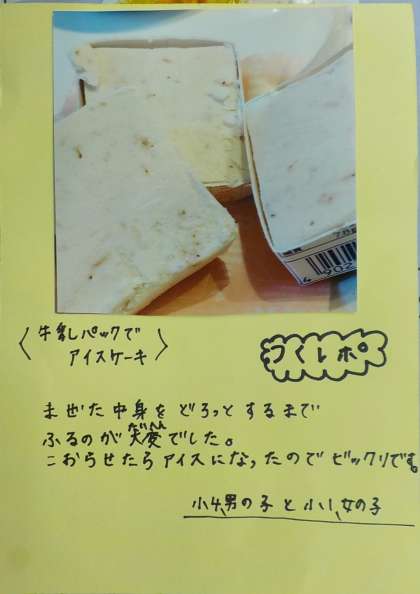 〈牛乳パックで
アイスケーキ〉
つくレポ
まぜた中身をどろっとするまで
ふるのが大変でした。
こおらせたらアイスになったのでビックリです。
小4男の子と小1女の子